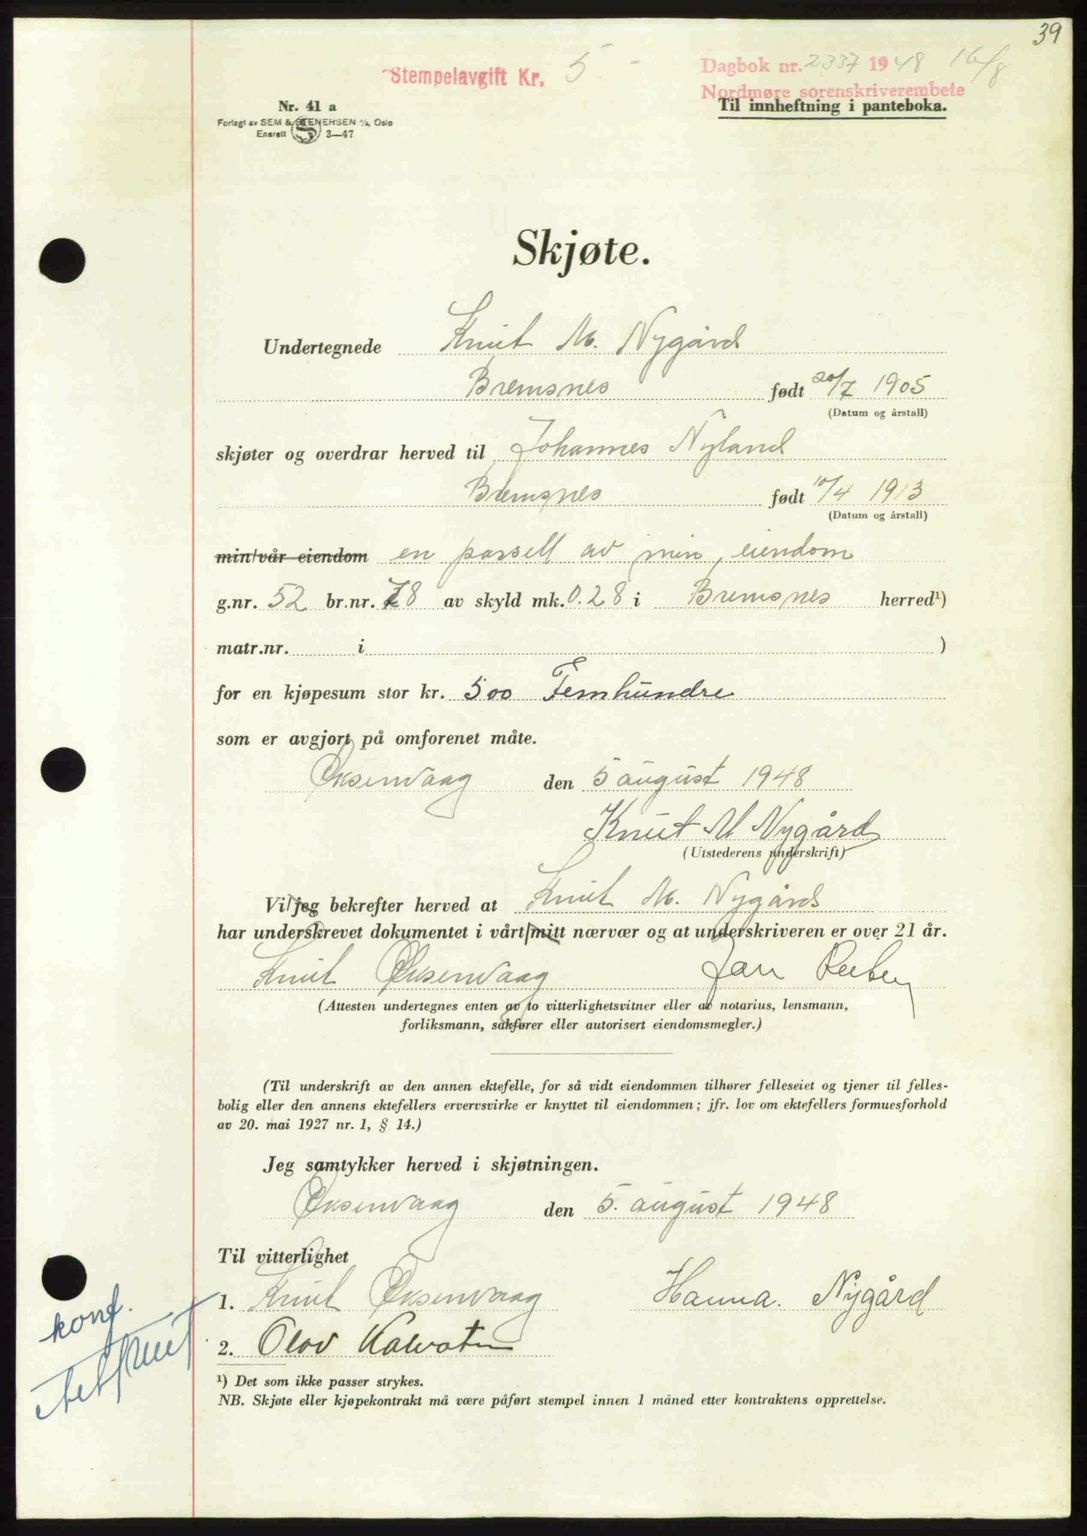 39
Stempelavgift Kr. 5 -
Dagbok nr. 2337 1948 16/8
Nordmøre sorenskriverembete
Nr. 41 a
Til innheftning i panteboka.
Forlagt av SEM & STENERSEN A/S, Oslo
Enerett 3—47
Skjøte.
Undertegnede Knut M. Nygård
Bremsnes født 20/7 1905
(Datum og årstall)
skjøter og overdrar herved til Johannes Nyland
Bremsnes født 10/4 1913
(Datum og årstall)
min/vår eiendom en parsell av min eiendom
g.nr. 52 br.nr. 78 av skyld mk. 0.28 i Bremsnes herred¹)
matr.nr. i )
for en kjøpesum stor kr. 500 Femhundre
som er avgjort på omforenet måte.
Øksenvaag den 5 august 1948
Knut M Nygård
(Utstederens underskrift)
Vi/jeg bekrefter herved at Knut M. Nygård
har underskrevet dokumentet i vårt/mitt nærvær og at underskriveren er over 21 år.
Knut Øksenvaag Jan
(Attesten undertegnes enten av to vitterlighetsvitner eller av notarius, lensmann,
forliksmann, sakfører eller autorisert eiendomsmegler.)
(Til underskrift av den annen ektefelle, for så vidt eiendommen tilhører felleseiet og tjener til felles-
bolig eller den annens ektefellers ervervsvirke er knyttet til eiendommen; jfr. lov om ektefellers formuesforhold
av 20. mai 1927 nr. 1, § 14.)
Jeg samtykker herved i skjøtningen.
Øksenvaag den 5. august 1948
Til vitterlighet
1. Knut Øksenvaag Hanna. Nygård
konf.
2. Olav Kalvatn
¹) Det som ikke passer strykes.
NB. Skjøte eller kjøpekontrakt må være påført stempel innen 1 måned etter kontraktens opprettelse.